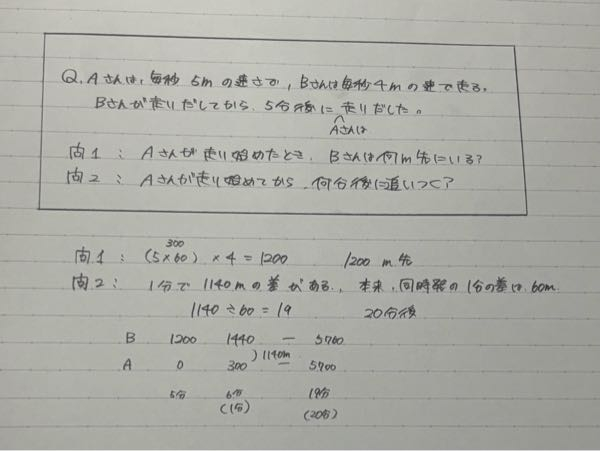 Q. Aさんは、毎秒 5m の速さで、Bさんは毎秒4mの速で走る。
Bさんが走りだしてから、5分後に 走りだした。
Aさんは
問1 : Aさんが走り始めたとき、Bさんは何m先にいる?
問2 : Aさんが走り始めてから、何分後に追いつく?
300
問1 : (5×60) ×4 = 1200 1200 m先
問2 : 1分で 1140mの差がある。本来、同時発の1分の差は 60m.
1140÷60 = 19 20分後
B 1200 1440 — 5760
)1140m
A 0 300 — 5700
5分 6分 19分
(1分) (20分)